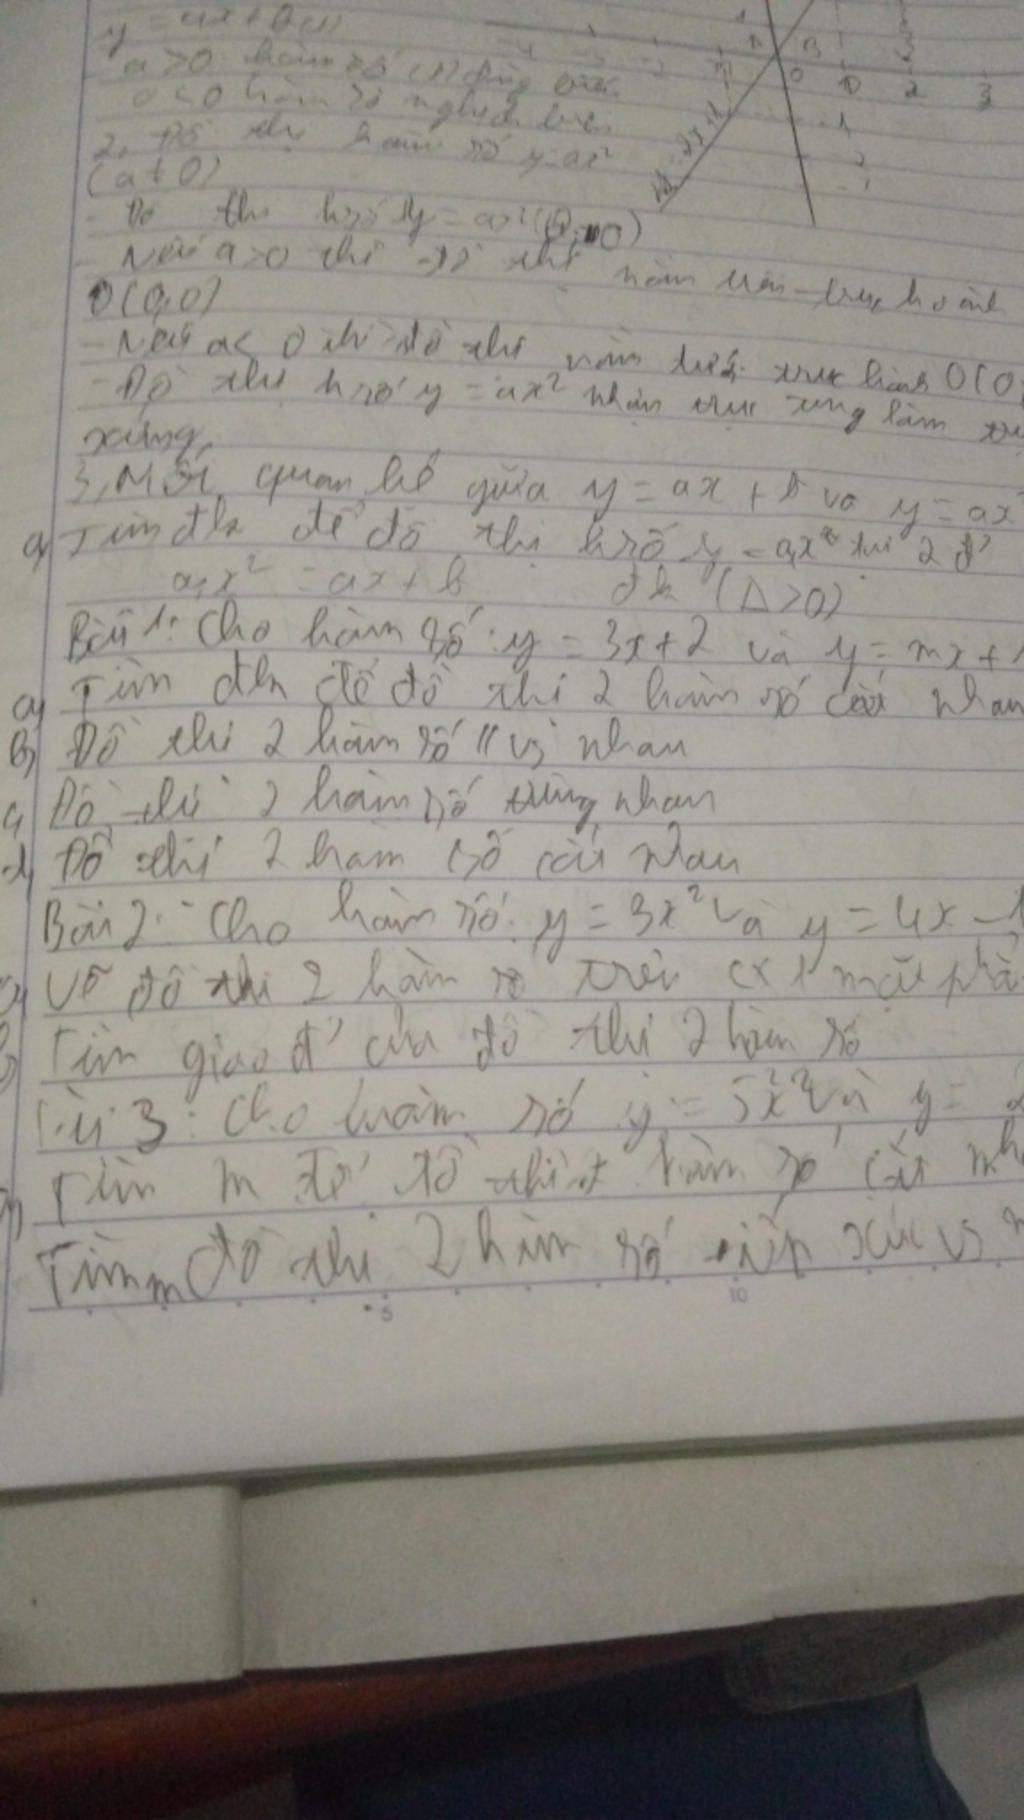 y = ax + b (1)
a > 0 hàm số (1) đồng biến
a < 0 hàm số nghịch biến
2, Đồ thị hàm số y = ax²
(a ≠ 0)
- Đồ thị hsố y = ax² (0; 0)
- Nếu a > 0 thì đồ thị nằm trên trục hoành
O(0,0)
- Nếu a < 0 thì đồ thị nằm dưới trục hoành O(0;
- Đồ thị hsố y = ax² nhận trục tung làm
xứng.
3, Mối quan hệ giữa y = ax + b và y = ax
a, Tìm đk để đồ thị hsố y = ax² tại 2 đ'
ax² = ax + b đk (Δ > 0)
Bài 1: Cho hàm số: y = 3x + 2 và y = mx + 1
a, Tìm đk để đồ thị 2 hàm số cắt nhau
b, Đồ thị 2 hàm số // vs nhau
c, Đồ thị 2 hàm số trùng nhau
d, Đồ thị 2 hàm số cắt nhau
Bài 2: Cho hàm số: y = 3x² và y = 4x - 1
a, Vẽ đồ thị 2 hàm số trên 1 mặt phẳ
Tìm giao đ' của đồ thị 2 hàm số
Bài 3: Cho hàm số y = 5x² và y = 2
Tìm m để đồ thị hàm số cắt nh
Tìm m đồ thị 2 hàm số tiếp xúc vs n
5 10
0 2 3